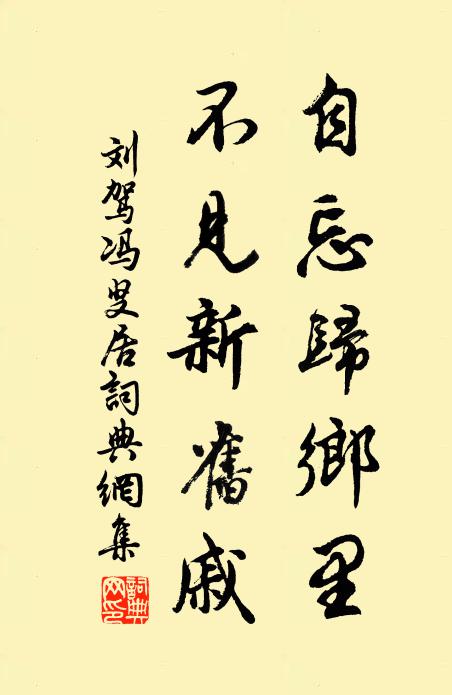 自忘歸鄉里
不見新舊戚
刘驾冯叟居詞典網集
詞典网印